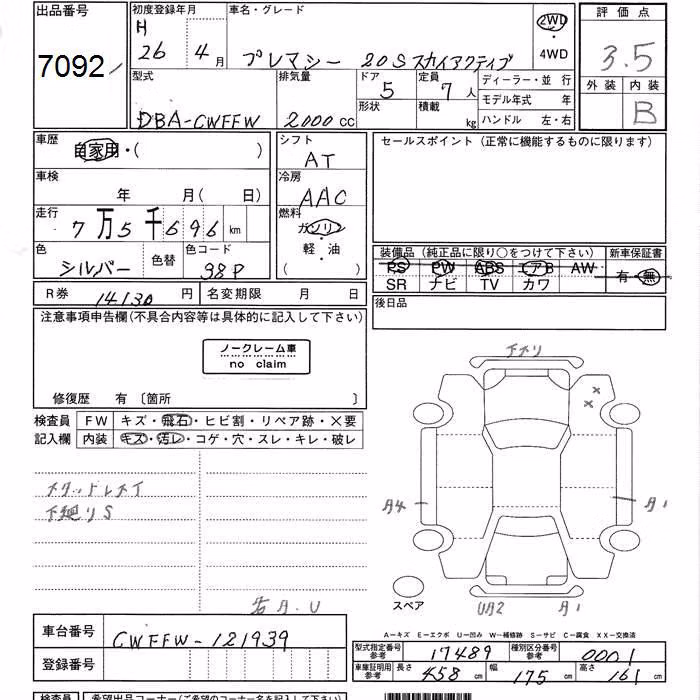 出品番号
7092
初度登録年月
H
26 4 月
車名・グレード
プレマシー 20S スカイアクティブ
2WD
・
4WD
評価点
3.5
外装 内装
B
型式
DBA-CWFFW
排気量
2000 cc
ドア
5
形状
定員
7 人
積載
kg
ディーラー・並 行
モデル年式 年
ハンドル 左・右
車歴
自家用・( )
シフト
AT
セールスポイント (正常に機能するものに限ります)
車検
年 月(日)
冷房
AAC
走行
7万5千696 km
燃料
ガソリン
・
軽・油
( )
色
シルバー
色替
色コード
38P
装備品 (純正品に限り○をつけて下さい)
新車保証書
PS PW ABS エアB AW
SR ナビ TV カワ
有・無
R券 14130 円
名変期限 月 日
後日品
注意事項申告欄(不具合内容等は具体的に記入して下さい)
ノークレーム車
no claim
修復歴 有 〔箇所 〕
検査員
記入欄
FW キズ・飛石・ヒビ割・リペア跡・×要
内装 キズ・汚レ・コゲ・穴・スレ・キレ・破レ
スタッドレスタイ
下廻りS
下スリ
スペア
A-キズ E-エクボ U-凹み W-補修跡 S-サビ C-腐食 XX-交換済
車台番号
CWFFW-121939
登録番号
型式指定番号
参考
17489
種別区分番号
参考
0001
車庫証明用
参考
長さ 458 cm
幅 175 cm
高さ 161 cm
検査員
希望出品コーナー(ご希望のコーナー名をご記入下さい)